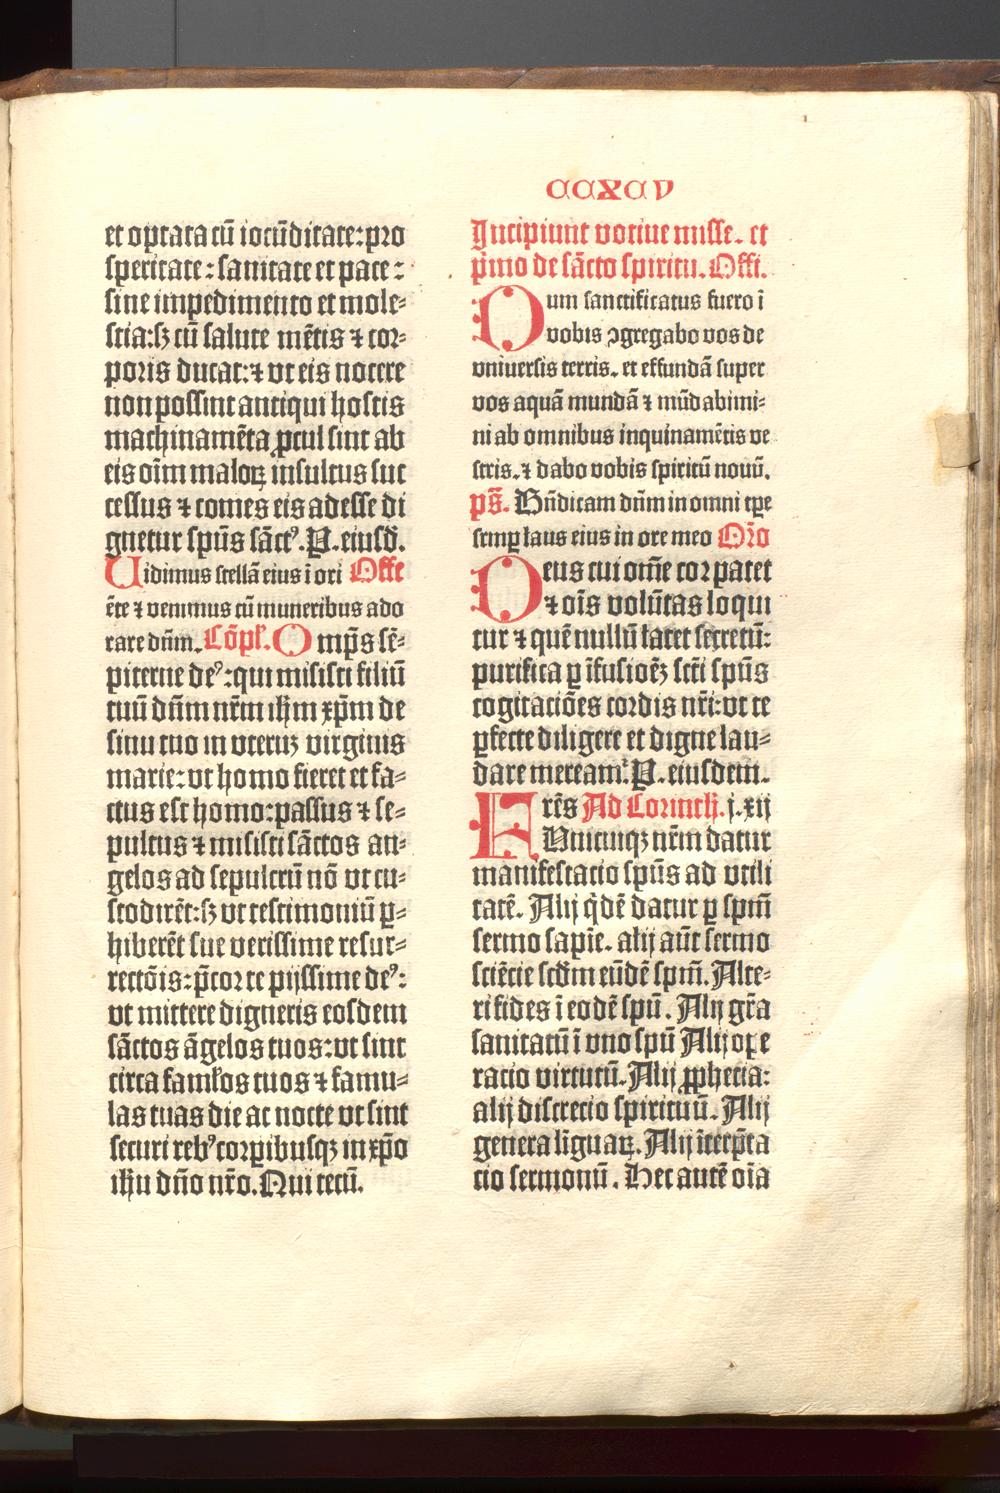 CCXCV
et optata cū iocūditate: pro
speritate: sanitate et pace:
sine impedimento et mole⸗
stia: sꝫ cū salute mētis ⁊ cor⸗
poris ducat: ⁊ vt eis nocere
non possint antiqui hostis
machinamēta ꝓcul sint ab
eis oīm maloꝝ insultus suc
cessus ⁊ comes eis adesse di
gnetur spūs sāctꝰ. P. eiusd̄.
Vidimus stellā eius ī ori Offe
ēte ⁊ venimus cū muneribus ado
rare dn̄m. Cōpl̄. Omp̄s sē⸗
piterne deꝰ: qui misisti filiū
tuū dn̄m nr̄m ih̄m xp̄m de
sinu tuo in vteruꝫ virginis
marie: vt homo fieret et fa⸗
ctus est homo: passus ⁊ se⸗
pultus ⁊ misisti sāctos an⸗
gelos ad sepulcrū nō vt cu⸗
stodirēt: sꝫ vt testimoniū ꝑ⸗
hiberēt sue verissime resur⸗
rectōis: p̄cor te pijssime deꝰ:
vt mittere digneris eosdem
sāctos āgelos tuos: vt sint
circa famłos tuos ⁊ famu⸗
las tuas die ac nocte vt sint
securi rebꝰ corꝑibusqꝫ in xp̄o
ih̄u dn̄o nr̄o. Qui tecū.
Incipiunt votiue misse. et
p̄mo de sācto spiritu. Offi.
Dum sanctificatus fuero ī
vobis ꝯgregabo vos de
vniuersis terris. et effundā super
vos aquā mundā ⁊ mūdabimi⸗
ni ab omnibus inquinamētis ve
stris. ⁊ dabo vobis spiritū nouū.
ps̄. Bn̄dicam dn̄m in omni tꝑe
semꝑ laus eius in ore meo Or̄o
Deus cui om̄e cor patet
⁊ oīs volūtas loqui
tur ⁊ quē nullū latet secretū:
purifica ꝑ īfusioēꝫ sct̄i spūs
cogitatiōes cordis nr̄i: vt te
ꝑfecte diligere et digne lau⸗
dare mereamᷣ. P. eiusdem.
Frēs Ad Corinth̄. j. xij
Vnicuiqꝫ nr̄m datur
manifestatio spūs ad vtili
tatē. Alij q̇dē datur ꝑ spm̄
sermo sapīe. alij aūt sermo
sciētie scd̄m eūdē spm̄. Alte⸗
ri fides ī eodē spū. Alij gr̄a
sanitatū ī vno spū Alij oꝑe
ratio virtutū. Alij ꝓphetia:
alij discretio spirituū. Alij
genera līguaꝝ. Alij īterp̄ta
tio sermonū. Hec autē oīa